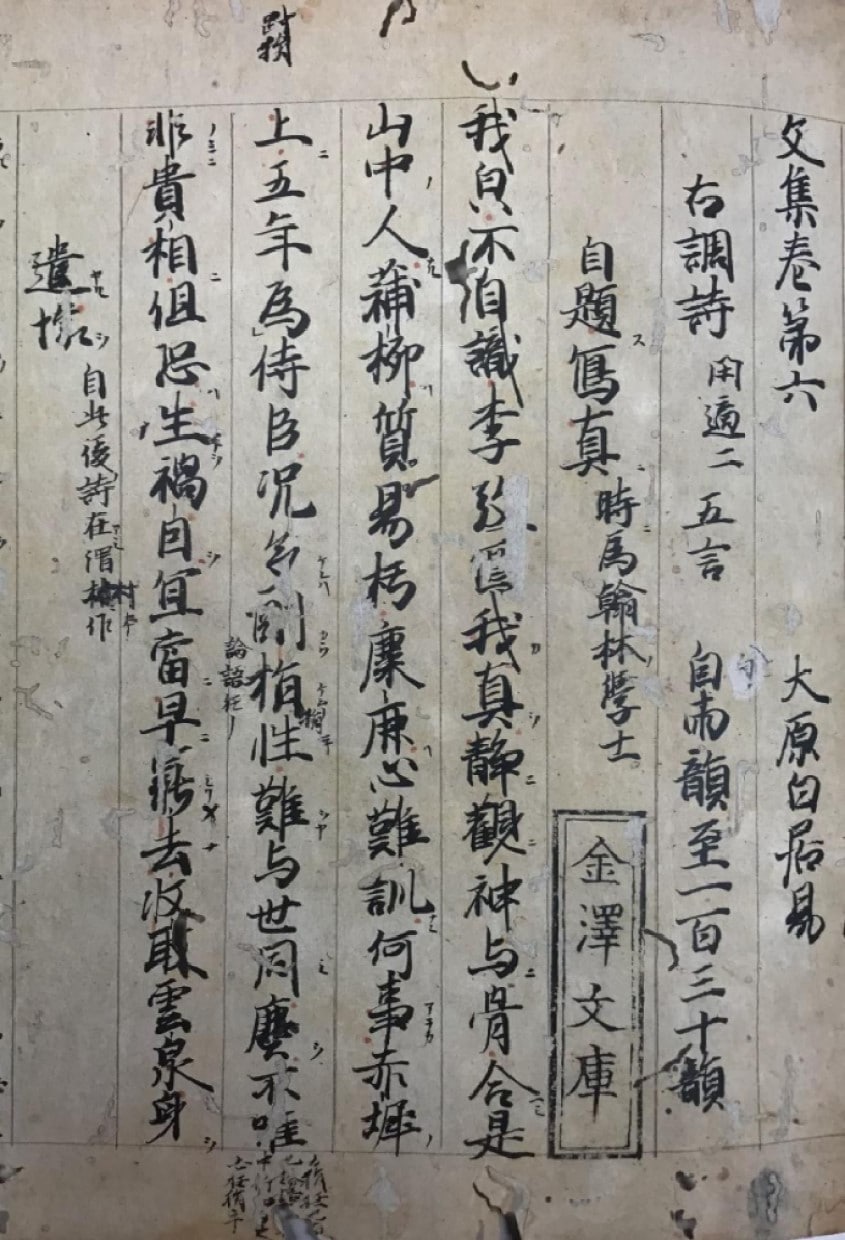 文集巻第六　大原白居易
右調詩 閑適二 五言 自兩韻至一百三十韻
自題寫真 時為翰林學士
金澤文庫
我皃不自識李放寫我真靜觀神与骨合是
山中人蒲柳質易朽麋鹿心難訓何事赤墀
上五年為侍臣況剛狷性難与世同塵不唯
論語
非貴相但恐生禍因宜當早罷去收取雲泉身
遣懷 自此後詩在渭村作